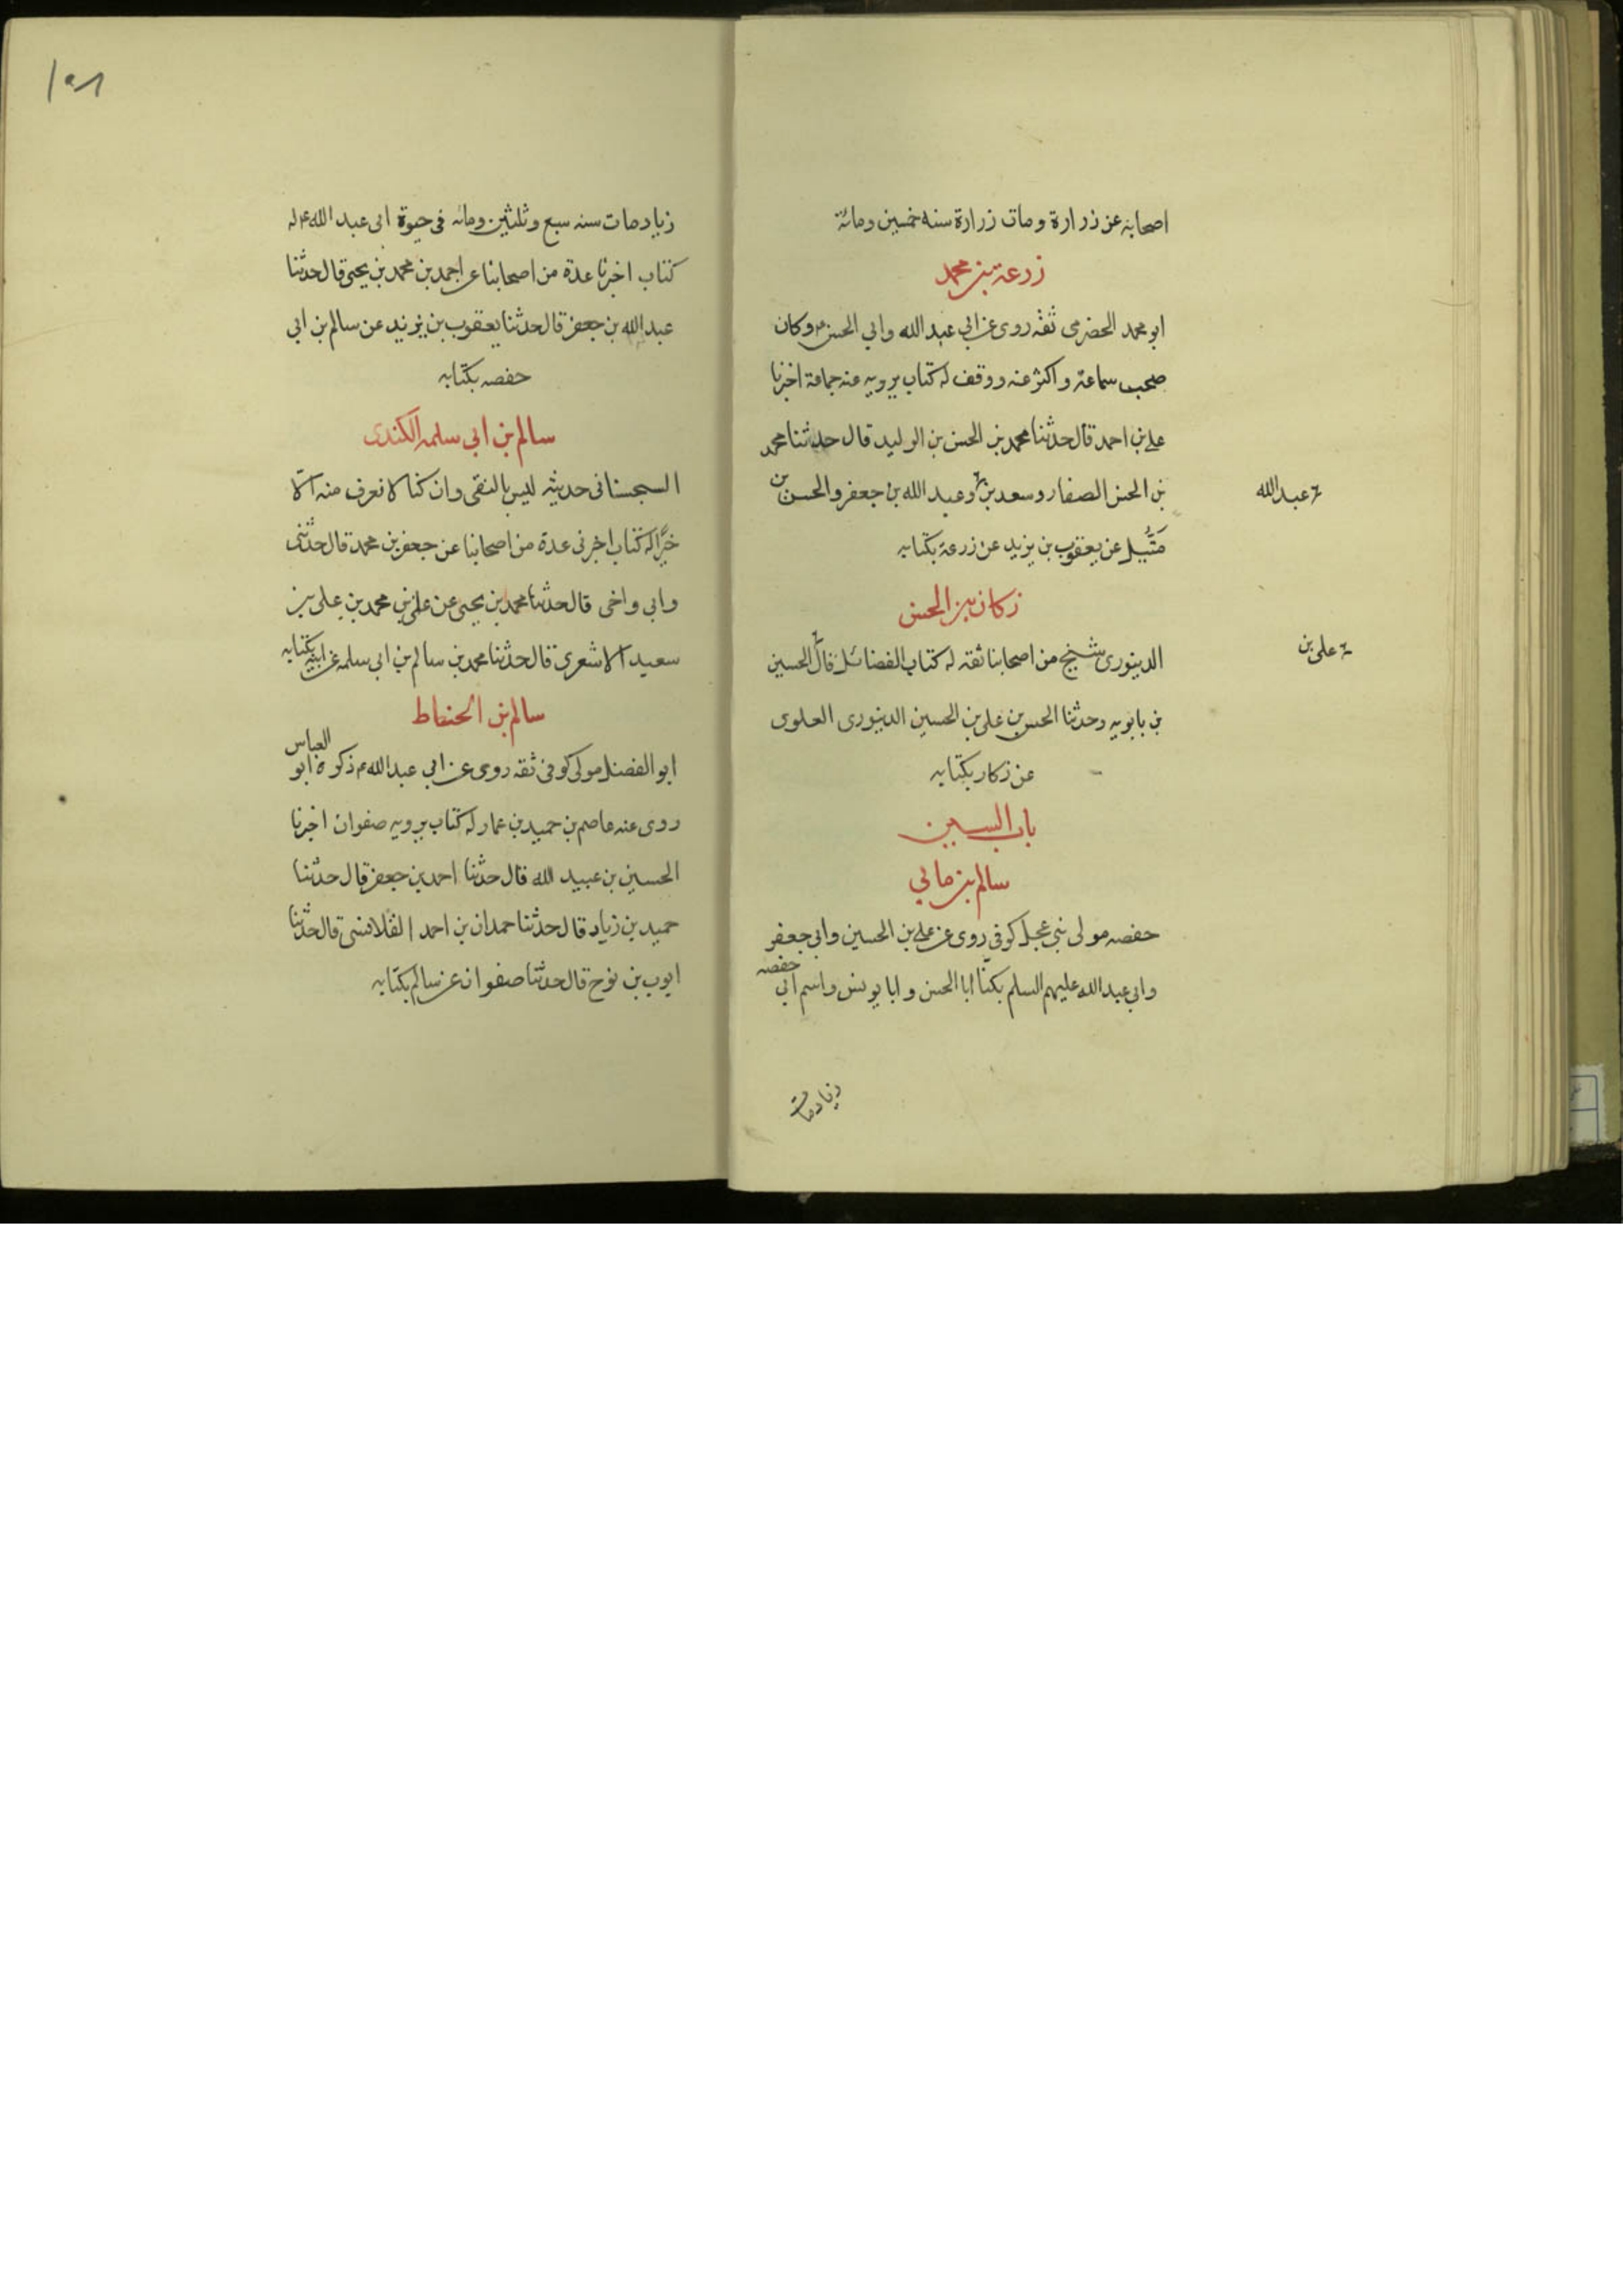 اصحابه عن زرارة ومات زرارة سنه خمسین ومائة
زرعة بن محمد
ابو محمد الحضرمی ثقه روی عن ابی عبد الله وابی الحسن ع وکان
صحب سماعة واکثر عنه ووقف له کتاب یرویه عنه جماعة اخبرنا
علی بن احمد قال حدثنا محمد بن الحسن بن الولید قال حدثنا محمد
بن الحسن الصفار وسعد بن وعبد الله بن جعفر والحسن بن
عبد الله
متیل عن یعقوب بن یزید عن زرعة بکتابه
زکار بن الحسن
الدینوری شیخ من اصحابنا ثقه له کتاب الفضائل قال الحسین
علی بن
بن بابویه وحدثنا الحسن بن علی بن الحسین الدینوری العلوی
عن زکار بکتابه
باب السین
سالم بن مابی
حفصه مولی بنی عجل کوفی روی عن علی بن الحسین وابی جعفر
وابی عبد الله علیهم السلم یکنا ابا الحسن وابا یونس واسم ابی حفصه
زیاد مات
۱۰۸
زیاد مات سنه سبع وثلثین ومائه فی حیوة ابی عبد الله ع له
کتاب اخبرنا عدة من اصحابنا عن احمد بن محمد بن یحیی قال حدثنا
عبد الله بن جعفر قال حدثنا یعقوب بن یزید عن سالم بن ابی
حفصه بکتابه
سالم بن ابی سلمه الکندی
السجستانی حدیثه لیس بالنقی وان کنا لا نعرف منه الا
خیرًا له کتاب اخبرنی عدة من اصحابنا عن جعفر بن محمد قال حدثنی
وابی واخی قال حدثنا محمد بن یحیی عن علی بن محمد بن علی بن
سعید الاشعری قال حدثنا محمد بن سالم بن ابی سلمه عن ابیه بکتابه
سالم بن الحناط
ابو الفضل مولی کوفی ثقه روی عن ابی عبد الله ع ذکره ابو العباس
روی عنه عاصم بن حمید بن عمار له کتاب یرویه صفوان اخبرنا
الحسین بن عبید الله قال حدثنا احمد بن جعفر قال حدثنا
حمید بن زیاد قال حدثنا حمدان بن احمد القلانسی قال حدثنا
ایوب بن نوح قال حدثنا صفوان عن سالم بکتابه